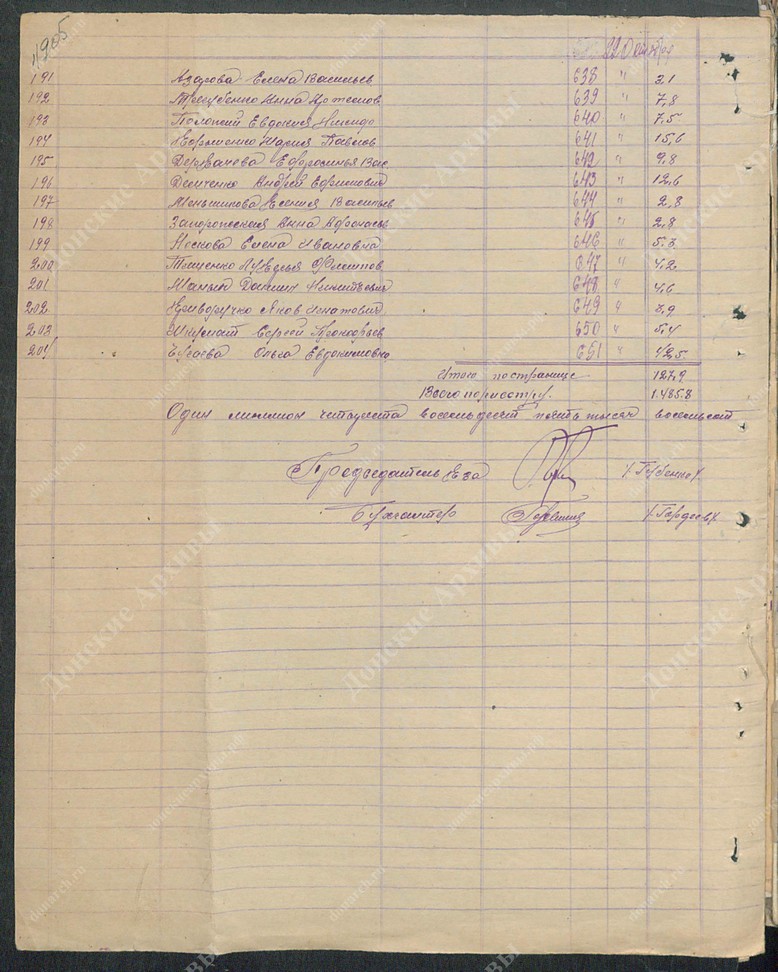 22 Октября
191 Азарова Елена Васильев 638 " 2,1
192 Трегубенко Анна Артемов 639 " 7,8
193 Положий Евдокия 640 " 7,5
194 Ефременко Мария Павлов 641 " 15,6
195 Ефросинья Вас 642 " 9,8
196 Демченко Андрей Ефимович 643 " 12,6
197 Меньшикова Евгения Васильев 644 " 2,8
198 Запорожская Анна Афанасьев 645 " 2,8
199 Носкова Елена Ивановна 646 " 5,3
200 Тищенко Лукерья Филипов 647 " 4,2
201 Малый Даниил Никитьевич 648 " 4,6
202 Криворучко Яков Игнатович 649 " 7,9
203 Сергей Прокофьев 650 " 5,4
204 Чугаева Ольга Евдокимовна 651 " 42,5
Итого по странице 127,9
Всего по реестру. 1.485.8
Один миллион четыреста восемьдесят пять тысяч восемьсот
Председатель /Губенко/.
Бухгалтер /Гордеев/
Донские Архивы
donarch.ru